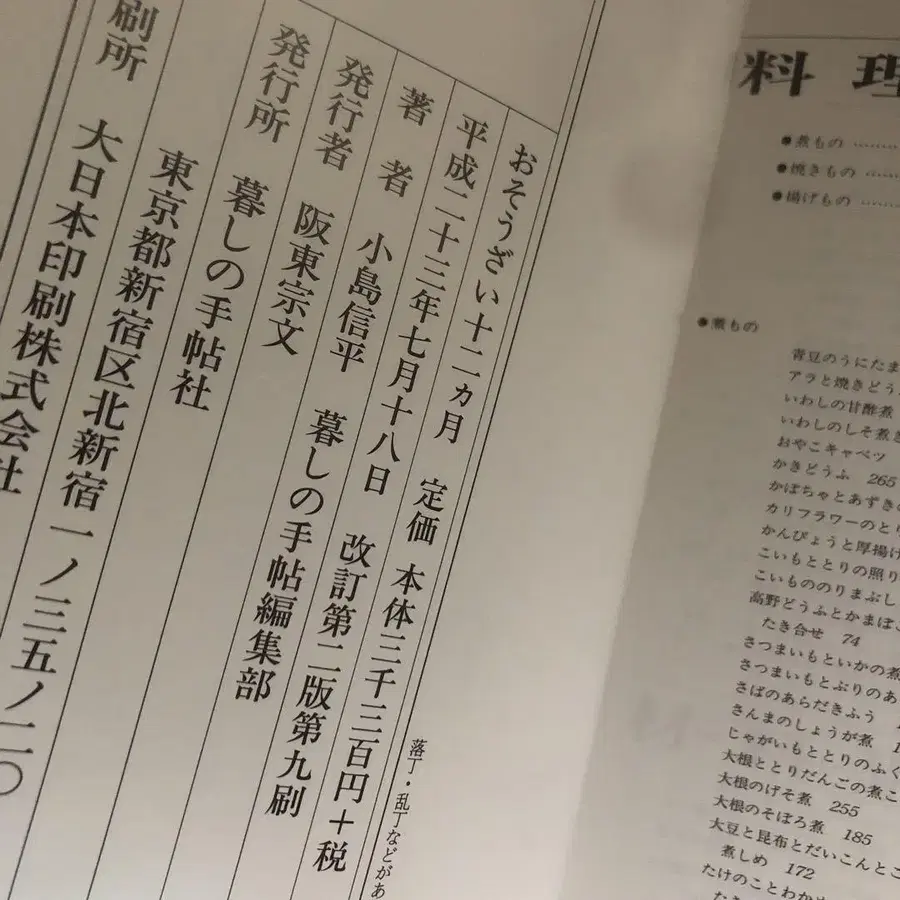 おそうざい十二ヵ月　定価　本体三千三百円＋税
平成二十三年七月十八日　改訂第二版第九刷
著者　小島信平　暮しの手帖編集部
発行者　阪東宗文
発行所　暮しの手帖社
東京都新宿区北新宿一ノ三五ノ二〇
刷所　大日本印刷株式会社
落丁・乱丁などがあ
料理
●煮もの
●焼きもの
●揚げもの
●煮もの
青豆のうにたま
アラと焼きどう
いわしの甘酢煮
いわしのしそ煮
おやこキャベツ
かきどうふ 265
かぼちゃとあずきの
カリフラワーのとり
かんぴょうと厚揚げ
こいもととりの照り
こいものりまぶし
高野どうふとかまぼこ
たき合せ 74
さつまいもといかの煮
さつまいもとぶりのあ
さばのあらだきふう
さんまのしょうが煮
じゃがいもととりのふく
大根ととりだんごの煮こ
大根のげそ煮 255
大根のそぼろ煮 185
大豆と昆布とだいこんとこ
煮しめ 172
たけのことわかめ